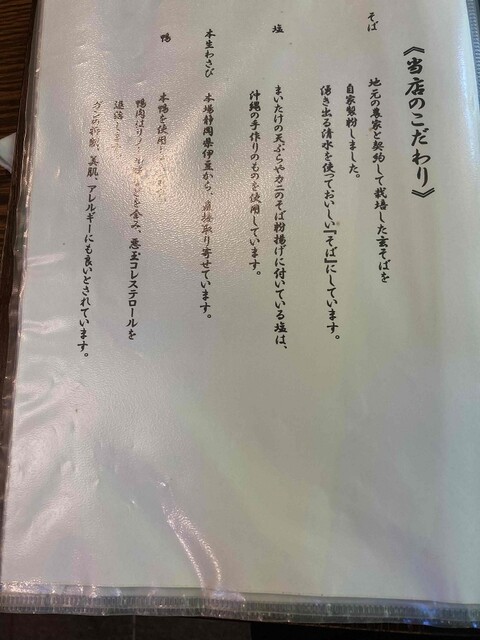 《当店のこだわり》
そば
地元の農家と契約して栽培した玄そばを
自家製粉しました。
湧き出る清水を使っておいしい『そば』にしています。
塩
まいたけの天ぷらやカニのそば粉揚げに付いている塩は、
沖縄の手作りのものを使用しています。
本生わさび
本場静岡県伊豆から、直接取り寄せています。
鴨
本鴨を使用
鴨肉はリノール を含み、悪玉コレステロールを
ガンの抑制、美肌、アレルギーにも良いとされています。